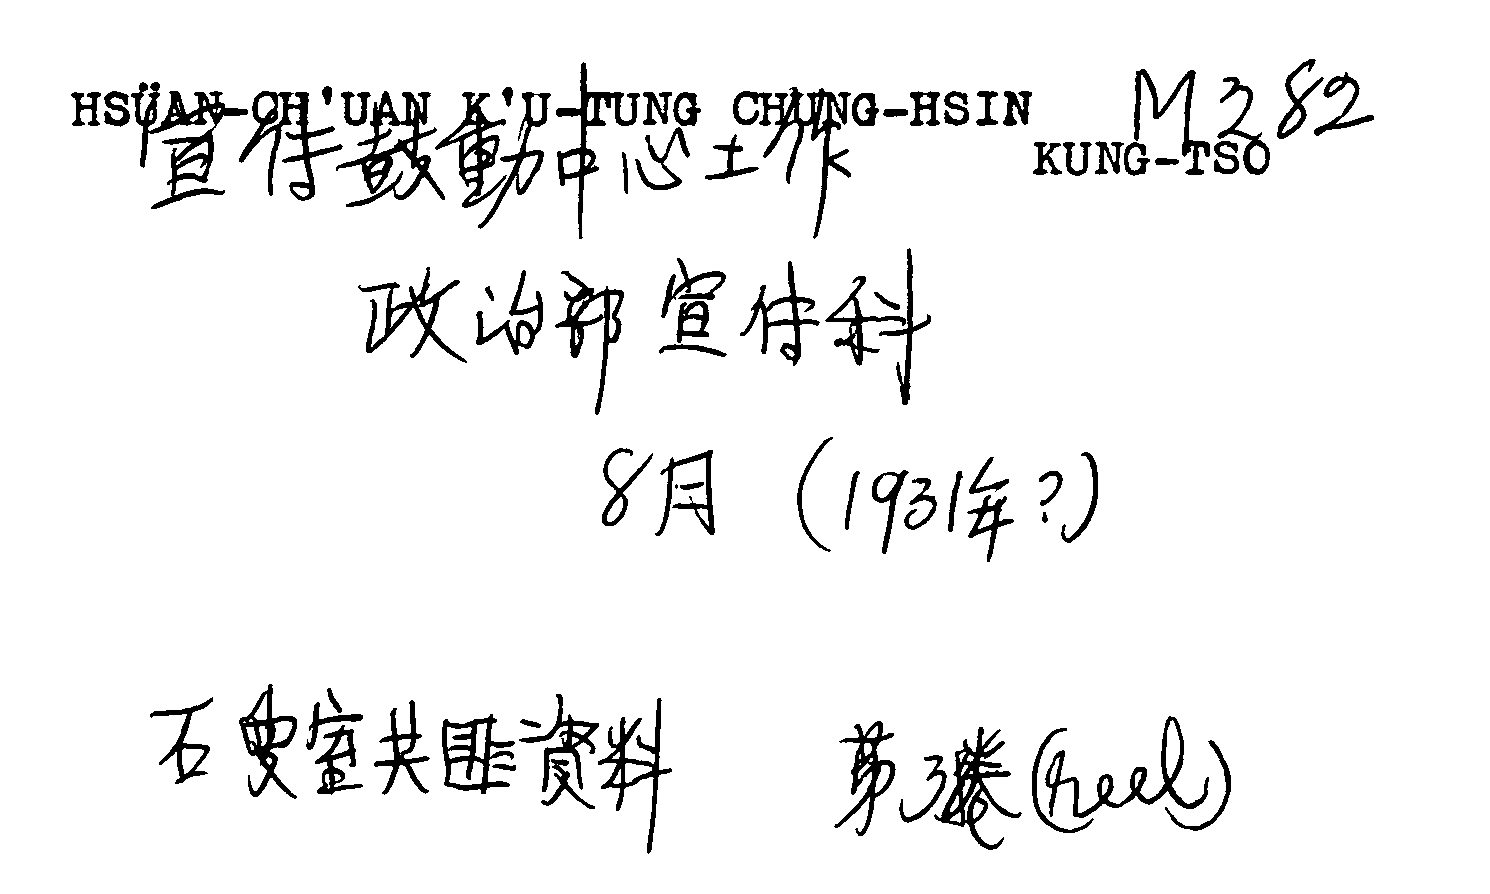 HSÜAN-CH'UAN K'U-TUNG CHUNG-HSIN M282
KUNG-TSO
宣传鼓動中心工作
政治部宣传科
8月 (1931年?)
石叟室共匪資料 第3捲(reel)